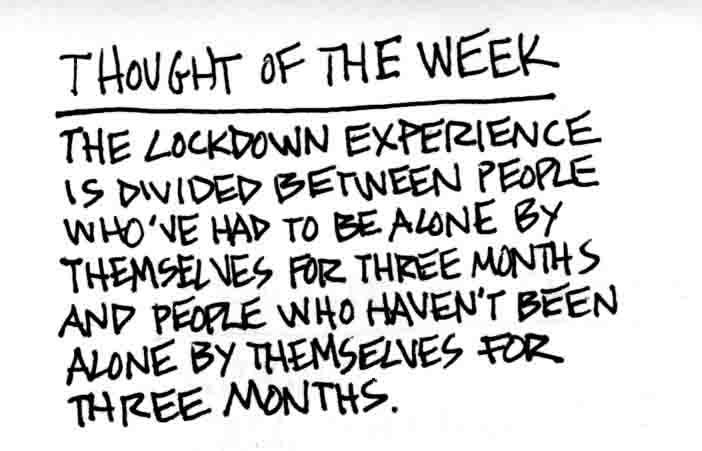 THOUGHT OF THE WEEK
THE LOCKDOWN EXPERIENCE
IS DIVIDED BETWEEN PEOPLE
WHO'VE HAD TO BE ALONE BY
THEMSELVES FOR THREE MONTHS
AND PEOPLE WHO HAVEN'T BEEN
ALONE BY THEMSELVES FOR
THREE MONTHS.